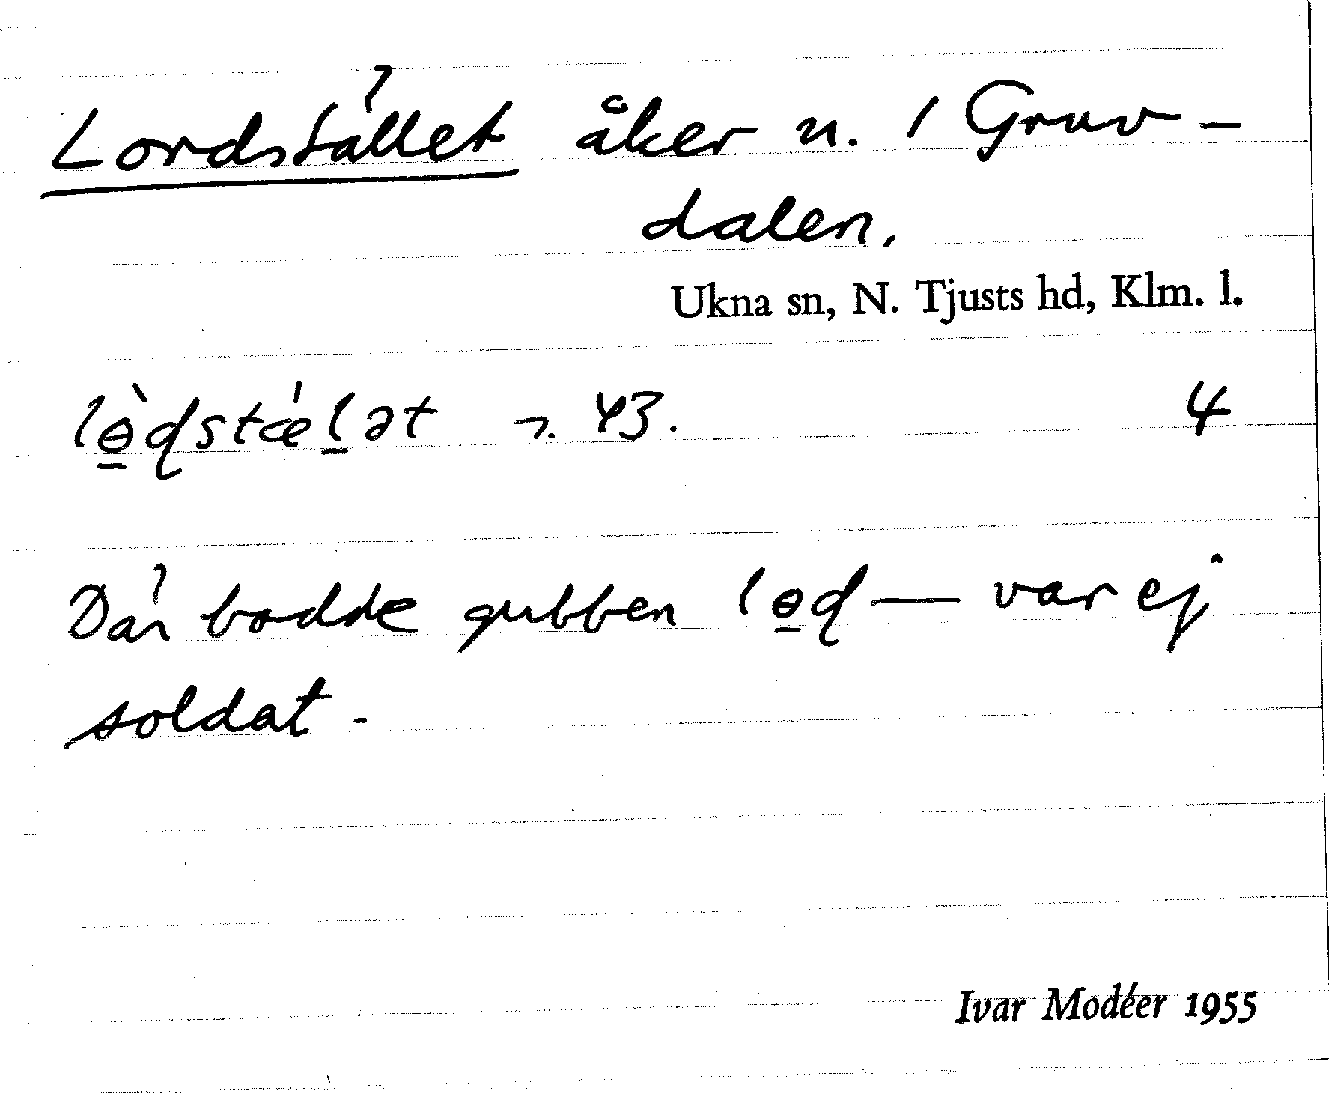 Lordstället åker n. / Gruv-
dalen.
Ukna sn, N. Tjusts hd, Klm. l.
lɵ̠̀ɖstǽl̠ət n. 43. 4
Där bodde gubben lɵ̠ɖ — var ej
soldat.
Ivar Modéer 1955